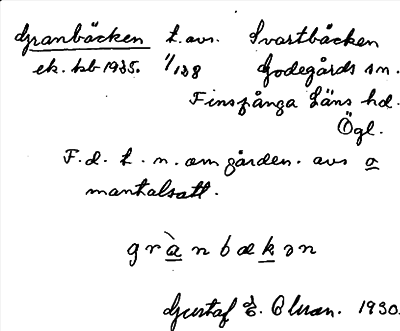 Granbäcken t. avs. Svartbäcken
ek. kb 1935. 1/138 Godegårds sn.
Finspånga läns hd.
Ögl.
F. d. t. n. om gården. avs a
mantalsatt.
grànbækən
Gustaf E. Olsson. 1930.